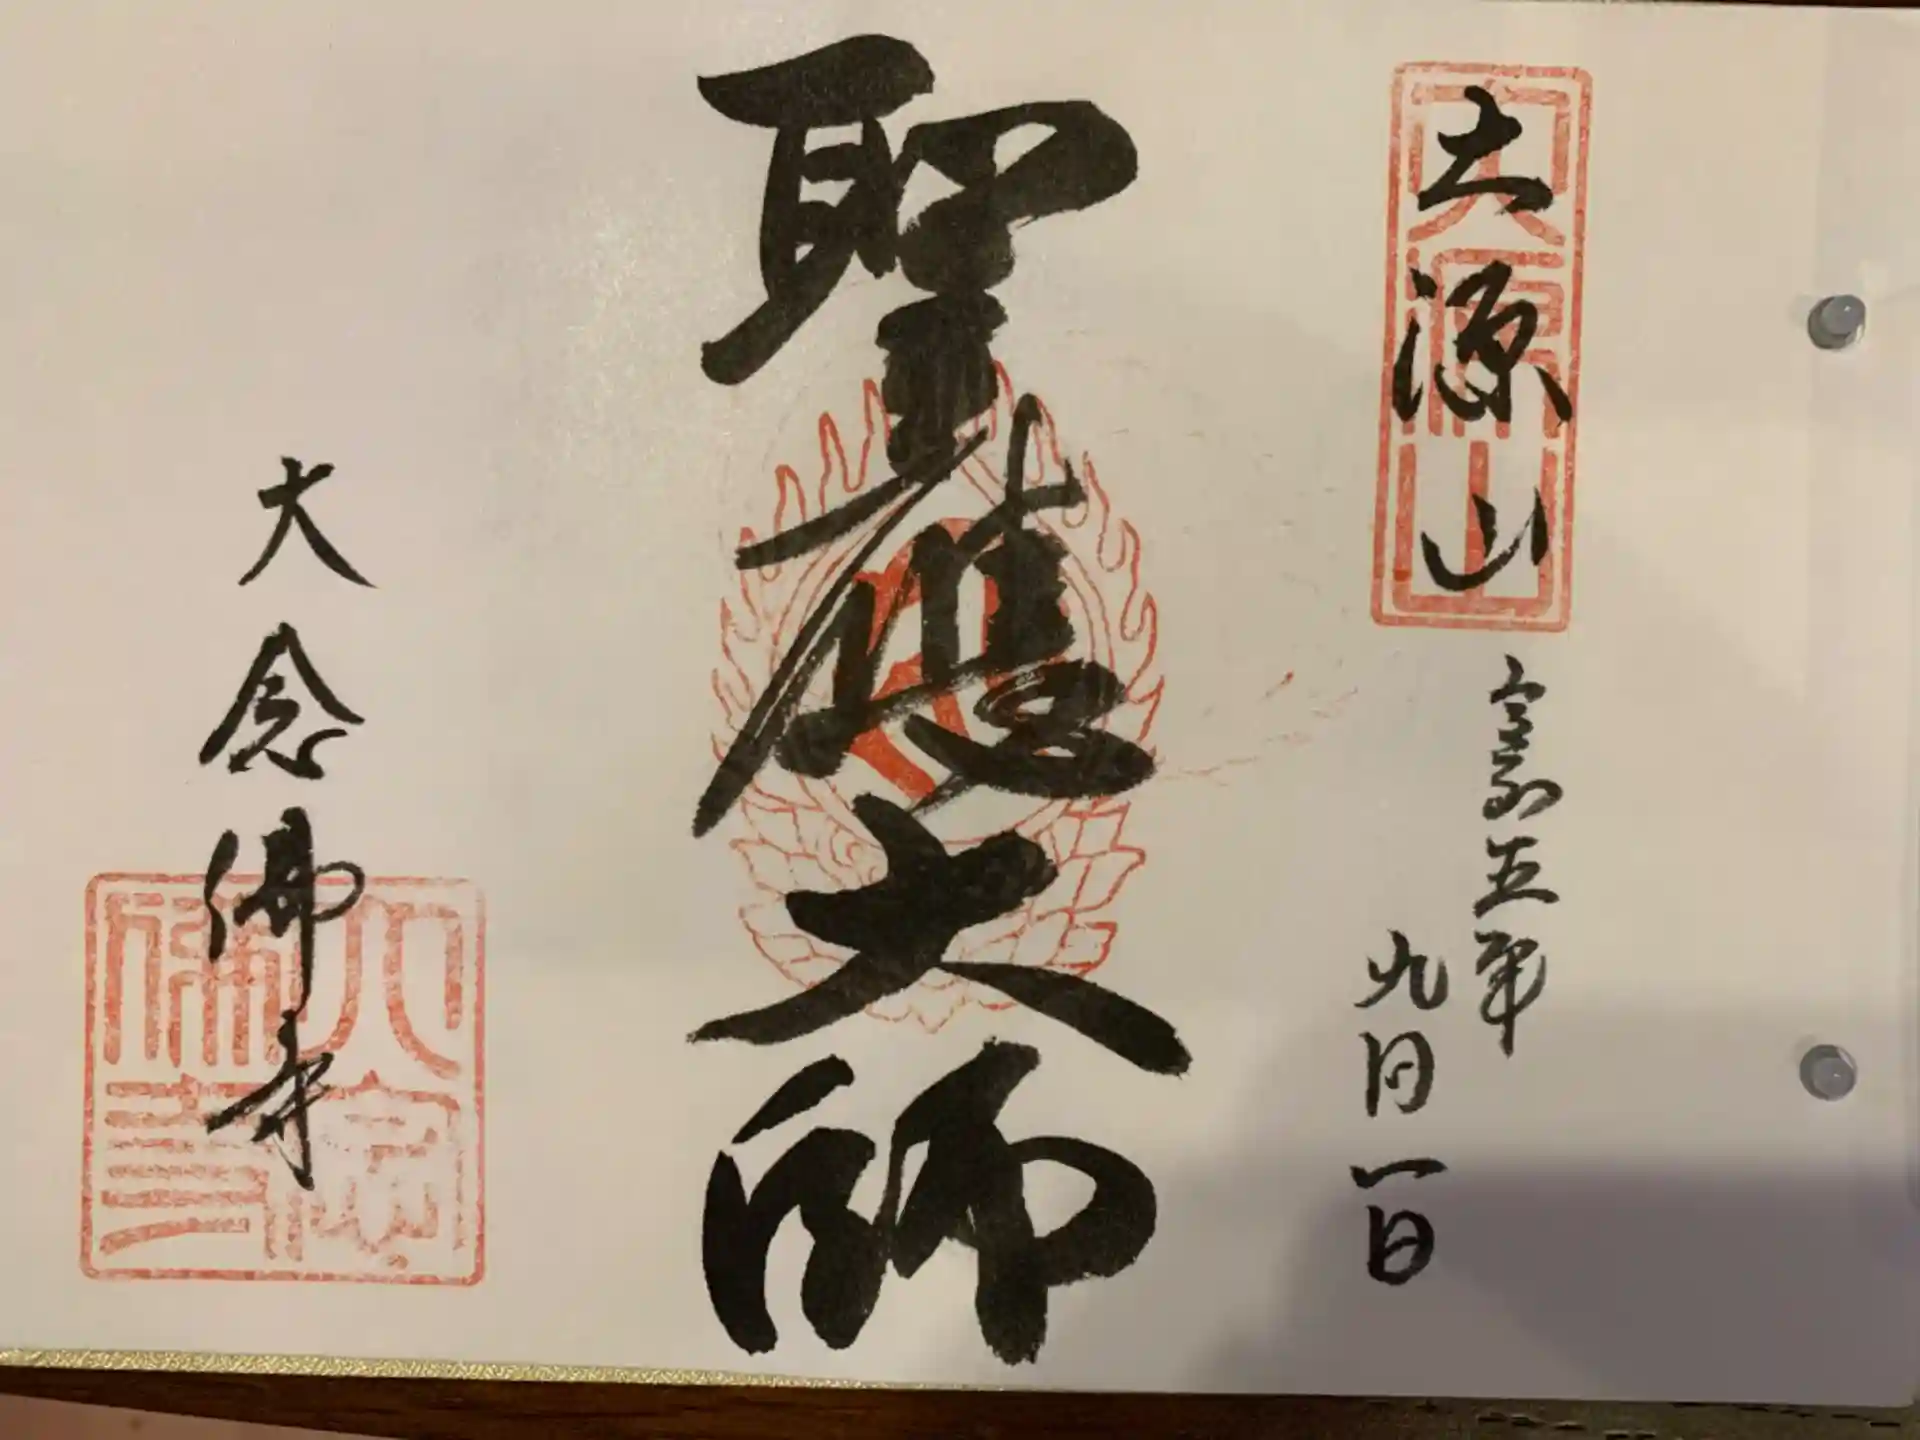 大源山
大源山
令和五年
九月一日
聖應大師
大念佛寺
大念佛寺